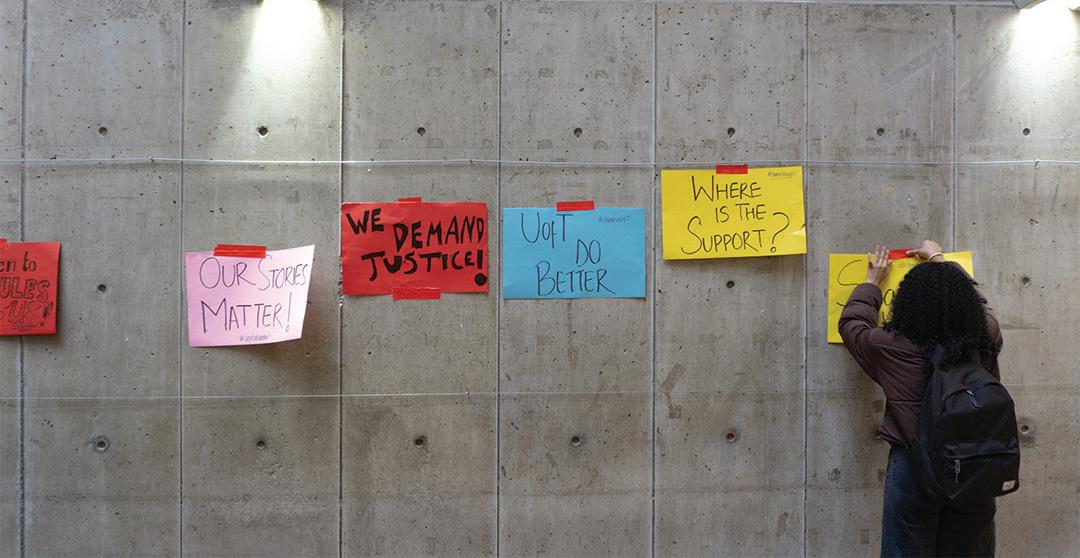 to
OUR STORIES
MATTER!
WE
DEMAND
JUSTICE!
UofT
DO
BETTER
WHERE
IS THE
SUPPORT?